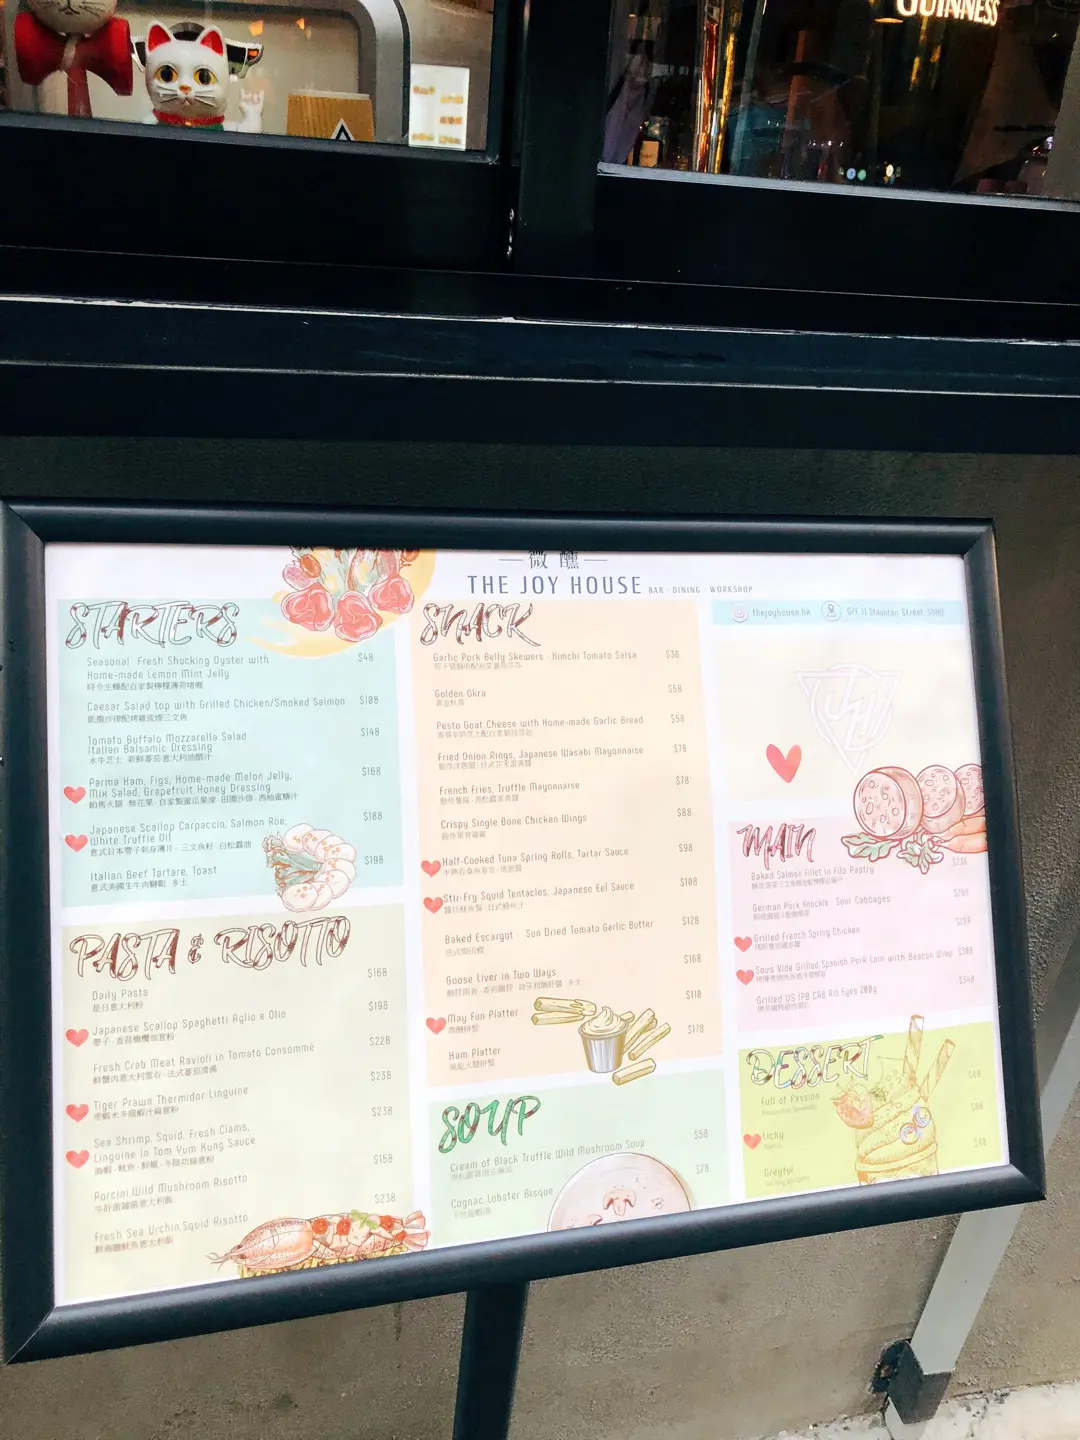 GUINNESS
微醺
THE JOY HOUSE BAR · DINING · WORKSHOP
thejoyhouse.hk
G/F, 11 Staunton Street, SOHO
STARTERS
Seasonal Fresh Shucking Oyster with $48
Home-made Lemon Mint Jelly
時令生蠔配自家製檸檬薄荷啫喱
Caesar Salad top with Grilled Chicken/Smoked Salmon $108
凱撒沙律配烤雞或煙三文魚
Tomato Buffalo Mozzarella Salad $148
Italian Balsamic Dressing
水牛芝士 新鮮蕃茄意大利油醋汁
Parma Ham, Figs, Home-made Melon Jelly, $168
Mix Salad, Grapefruit Honey Dressing
帕馬火腿·無花果·自家製蜜瓜果凍·田園沙律·西柚蜜糖汁
Japanese Scallop Carpaccio, Salmon Roe, $188
White Truffle Oil
意式日本帶子刺身薄片·三文魚籽·白松露油
Italian Beef Tartare, Toast $198
多士
PASTA & RISOTTO
Daily Pasta $168
是日意大利粉
Japanese Scallop Spaghetti Aglio e Olio $198
帶子·香蒜橄欖油意粉
Fresh Crab Meat Ravioli in Tomato Consommé $228
鮮蟹肉意大利雲吞·法式蕃茄清湯
Tiger Prawn Thermidor Linguine $238
Sea Shrimp, Squid, Fresh Clams, $238
Linguine in Tom Yum Kung Sauce
海蝦·魷魚·鮮蜆·冬陰功扁意粉
Porcini Wild Mushroom Risotto $158
牛肝菌雜菌意大利飯
Fresh Sea Urchin Squid Risotto $238
鮮海膽魷魚意大利飯
SNACK
Garlic Pork Belly Skewers · Kimchi Tomato Salsa $38
Golden Okra $58
黃金秋葵
Pesto Goat Cheese with Home-made Garlic Bread $58
Fried Onion Rings, Japanese Wasabi Mayonnaise $78
French Fries, Truffle Mayonnaise $78
Crispy Single Bone Chicken Wings $88
Half-Cooked Tuna Spring Rolls, Tartar Sauce $98
Stir-Fry Squid Tentacles, Japanese Eel Sauce $108
Baked Escargot · Sun Dried Tomato Garlic Butter $128
Goose Liver in Two Ways $168
May Fun Platter $118
微醺拼盤
Ham Platter $178
風乾火腿拼盤
SOUP
Cream of Black Truffle Wild Mushroom Soup $58
Cognac Lobster Bisque $78
MAIN
Baked Salmon Fillet in Filo Pastry
German Pork Knuckle · Sour Cabbages
Grilled French Spring Chicken
Sous Vide Grilled Spanish Pork Loin with Beacon Wrap
Grilled US IPB CAB Rib Eyes 200g
DESSERT
Full of Passion $68
Lichy
Greyful